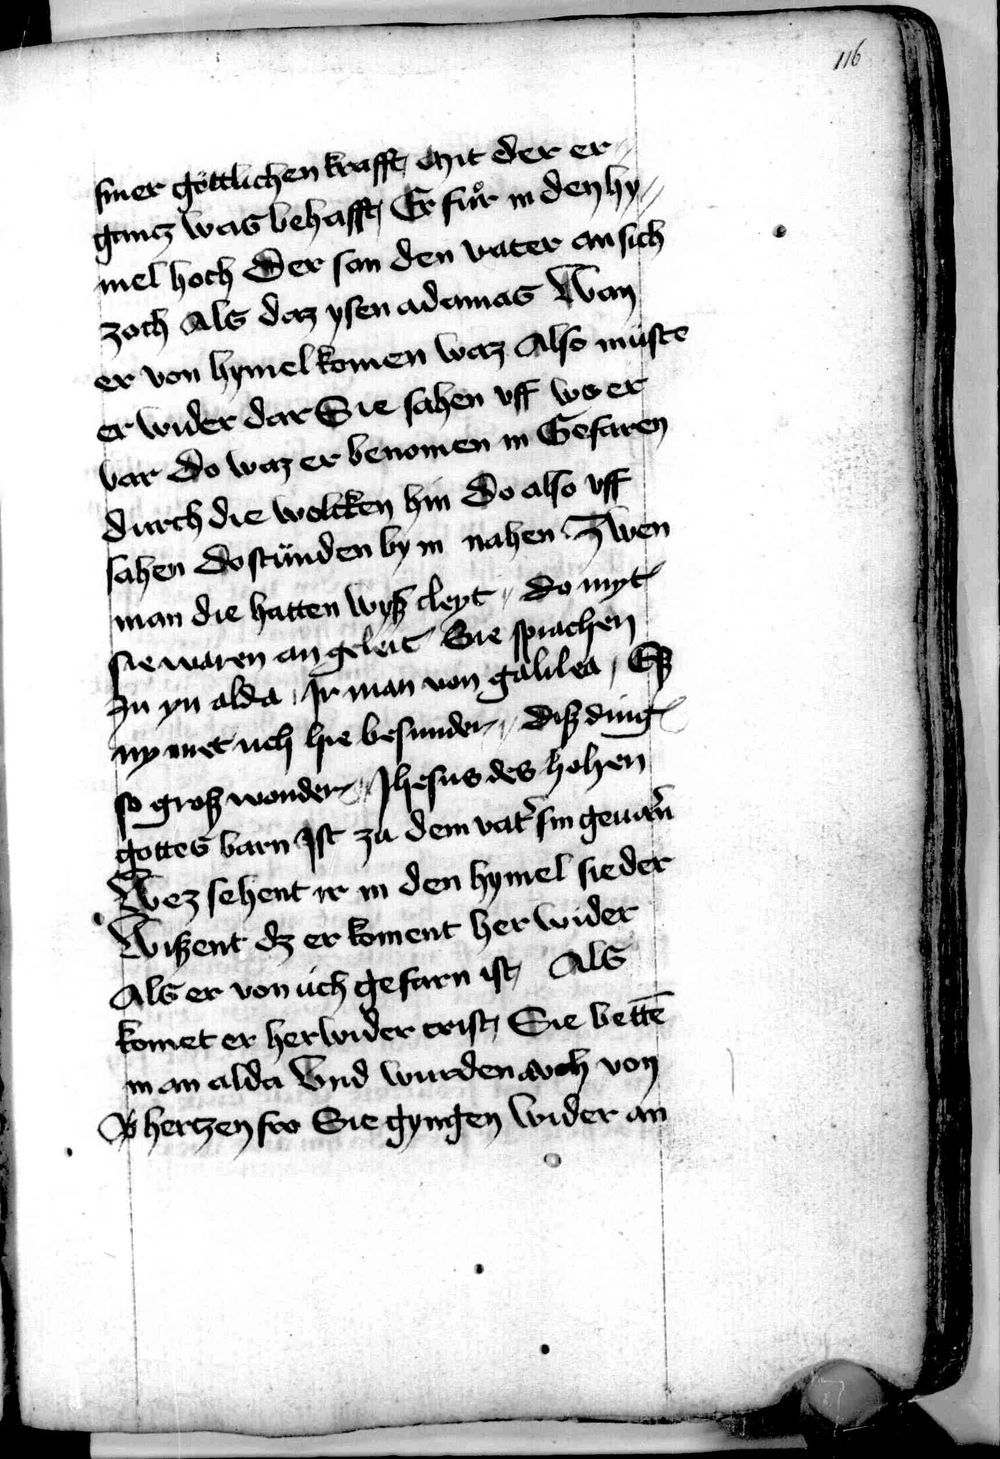 116
siner göttlichen krafft Mit der er
gantz was behafft Er für in den hy
mel hoch Der son den vater an sich
zoch Als daz ysen adamas Wan
er von hymel komen waz Also müste
er wider dar Sie sahen uff wo er
var Do waz er benomen in Gefaren
durch die wolcken hin Do also uff
sahen Do stünden by in nahen Zwen
man die hatten wyß cleyt Do myt
sie waren an geleit Sie sprachen
zu yn alda Ir man von galilea Eß
ny met uch hie besunder Diß ding
so groß wonder Jhesus des hohen
gottes barn Ist zu dem vat' sin geuarn
Wez sehent ir in den hymel sieder
Wißent dz er koment her wider
Als er von üch gefarn ist Als
komet er her wider crist Sie bettē
in an alda Und wurden och von
hertzen fro Sie gyngen wider an